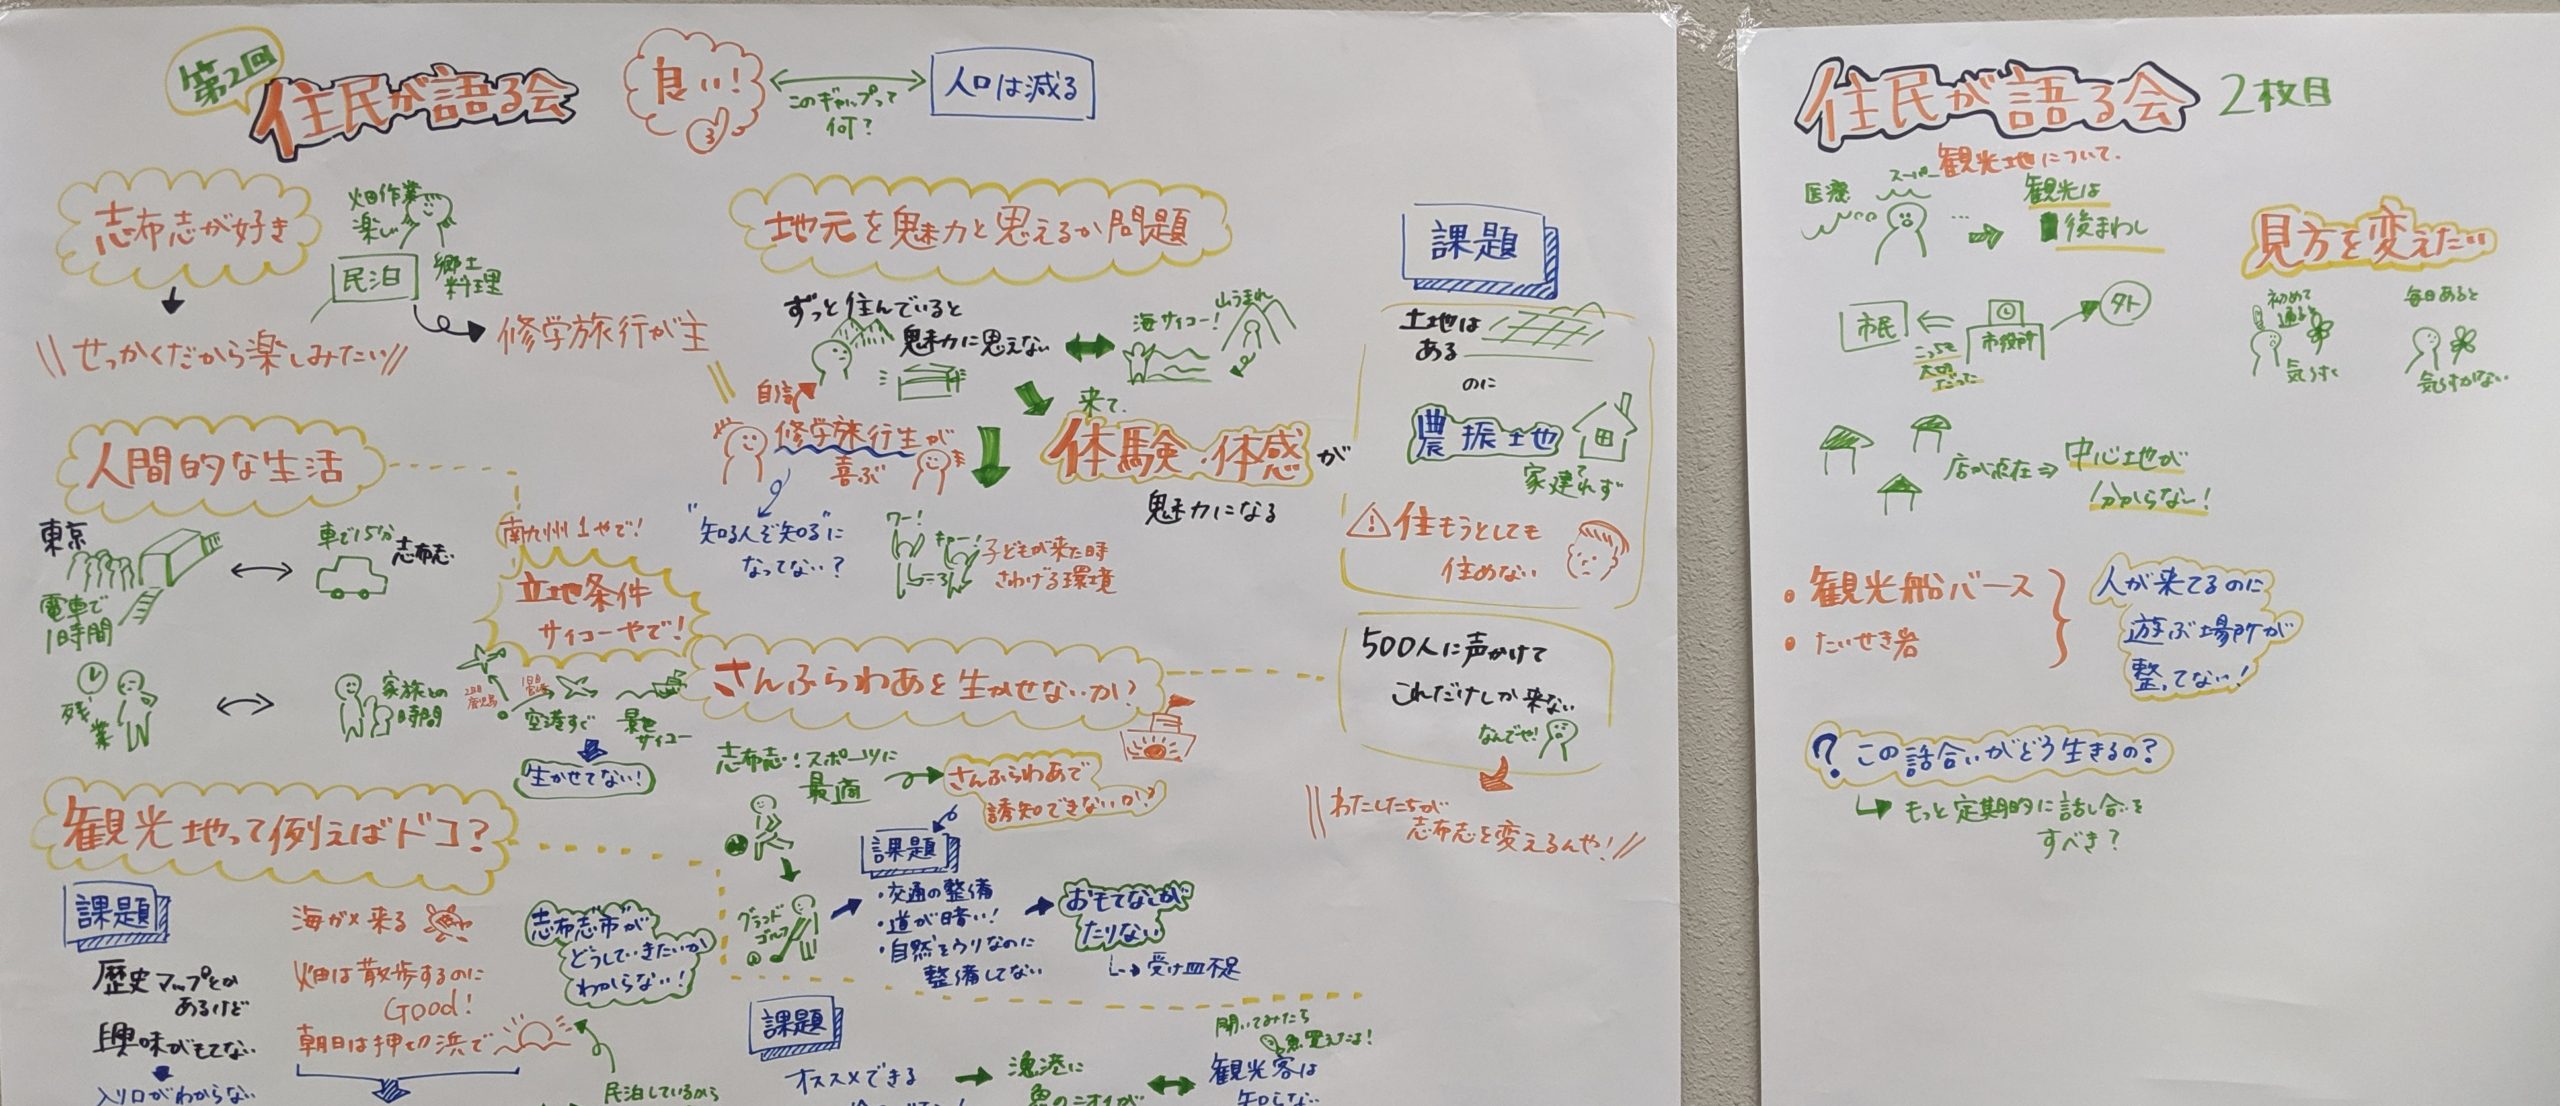 第2回
住民が語る会
良い!
このギャップって
何?
人口は減る
志布志が好き
せっかくだから楽しみたい
畑作業
楽しい
民泊
郷土
料理
修学旅行が主
人間的な生活
東京
電車で
1時間
車で15分
志布志
残業
家族との
時間
南九州1やで!
立地条件
サイコーやで!
1日目
2日目
鹿児島
空港すぐ
景色
サイコー
生かせてない!
地元を魅力と思えるか問題
ずっと住んでいると
魅力に思えない
海サイコー!
山うまれ
自信
修学旅行生が
喜ぶ
"知る人ぞ知る"に
なってない?
来て、
体験・体感が
魅力になる
ワー!
キャー!
子どもが来た時
さわげる環境
課題
土地は
ある
のに
農振土地
家建てれず
住もうとしても
住めない
500人に声かけて
これだけしか来ない
なんでや!
わたしたちが
志布志を変えるんや!
さんふらわあを生かせないか?
志布志!スポーツに
最適
さんふらわあで
誘知できないか?
グランド
ゴルフ
課題
・交通の整備
・道が暗い!
・自然をウリなのに
整備してない
おもてなしが
たりない
受け皿不足
観光地って例えばドコ?
課題
歴史マップとか
あるけど
興味がもてない
入り口がわからない
海がメ来る
畑は散歩するのに
Good!
朝日は押切浜で
志布志市が
どうしていきたいか
わからない!
民泊しているから
課題
オススメできる
漁港に
魚のニオイが
聞いてみたら
魚買えたよ!
観光客は
知らない
住民が語る会 2枚目
観光地について、
医療
スーパー
観光は
後まわし
市民
こっちを
大切
だった
市役所
外
見方を変えたい
初めて
通ると
気づく
毎日あると
気づかない
店が点在⇒
中心地が
分からない!
・観光船バース
・たいせき岩
人が来てるのに
遊ぶ場所が
整ってない!
? この話合いがどう生きるの?
もっと定期的に話し合いを
すべき?